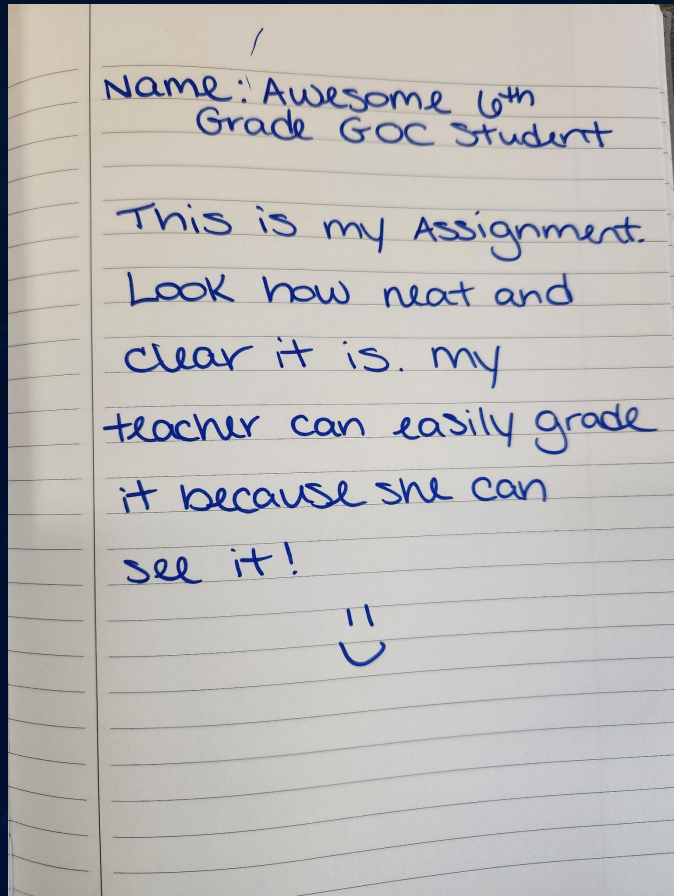 Name: Awesome 6th
Grade GOC Student
This is my Assignment.
Look how neat and
clear it is. my
teacher can easily grade
it because she can
see it!